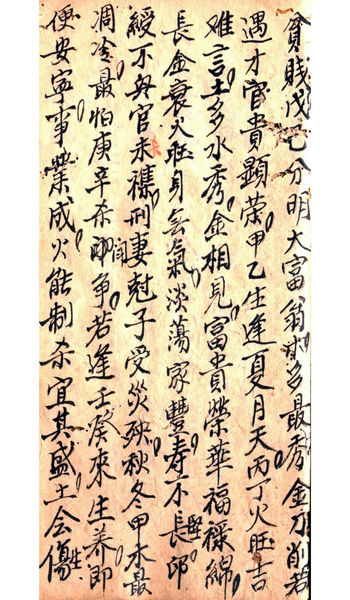 貧賤戊己分明大富翁木多最秀金刀削若
遇才官貴顯荣甲乙生逢夏月天丙丁火旺吉
难言土多水秀金相見富貴榮華福祿綿
長金衰火旺身無氣淡蕩家豐寿不長卽
綬不母官未獲刑妻尅子受災殃秋冬甲木最
凋冷最怕庚辛杀闹争若逢壬癸來生养即
便安寧事業成火能制杀宜其盛土会傷生